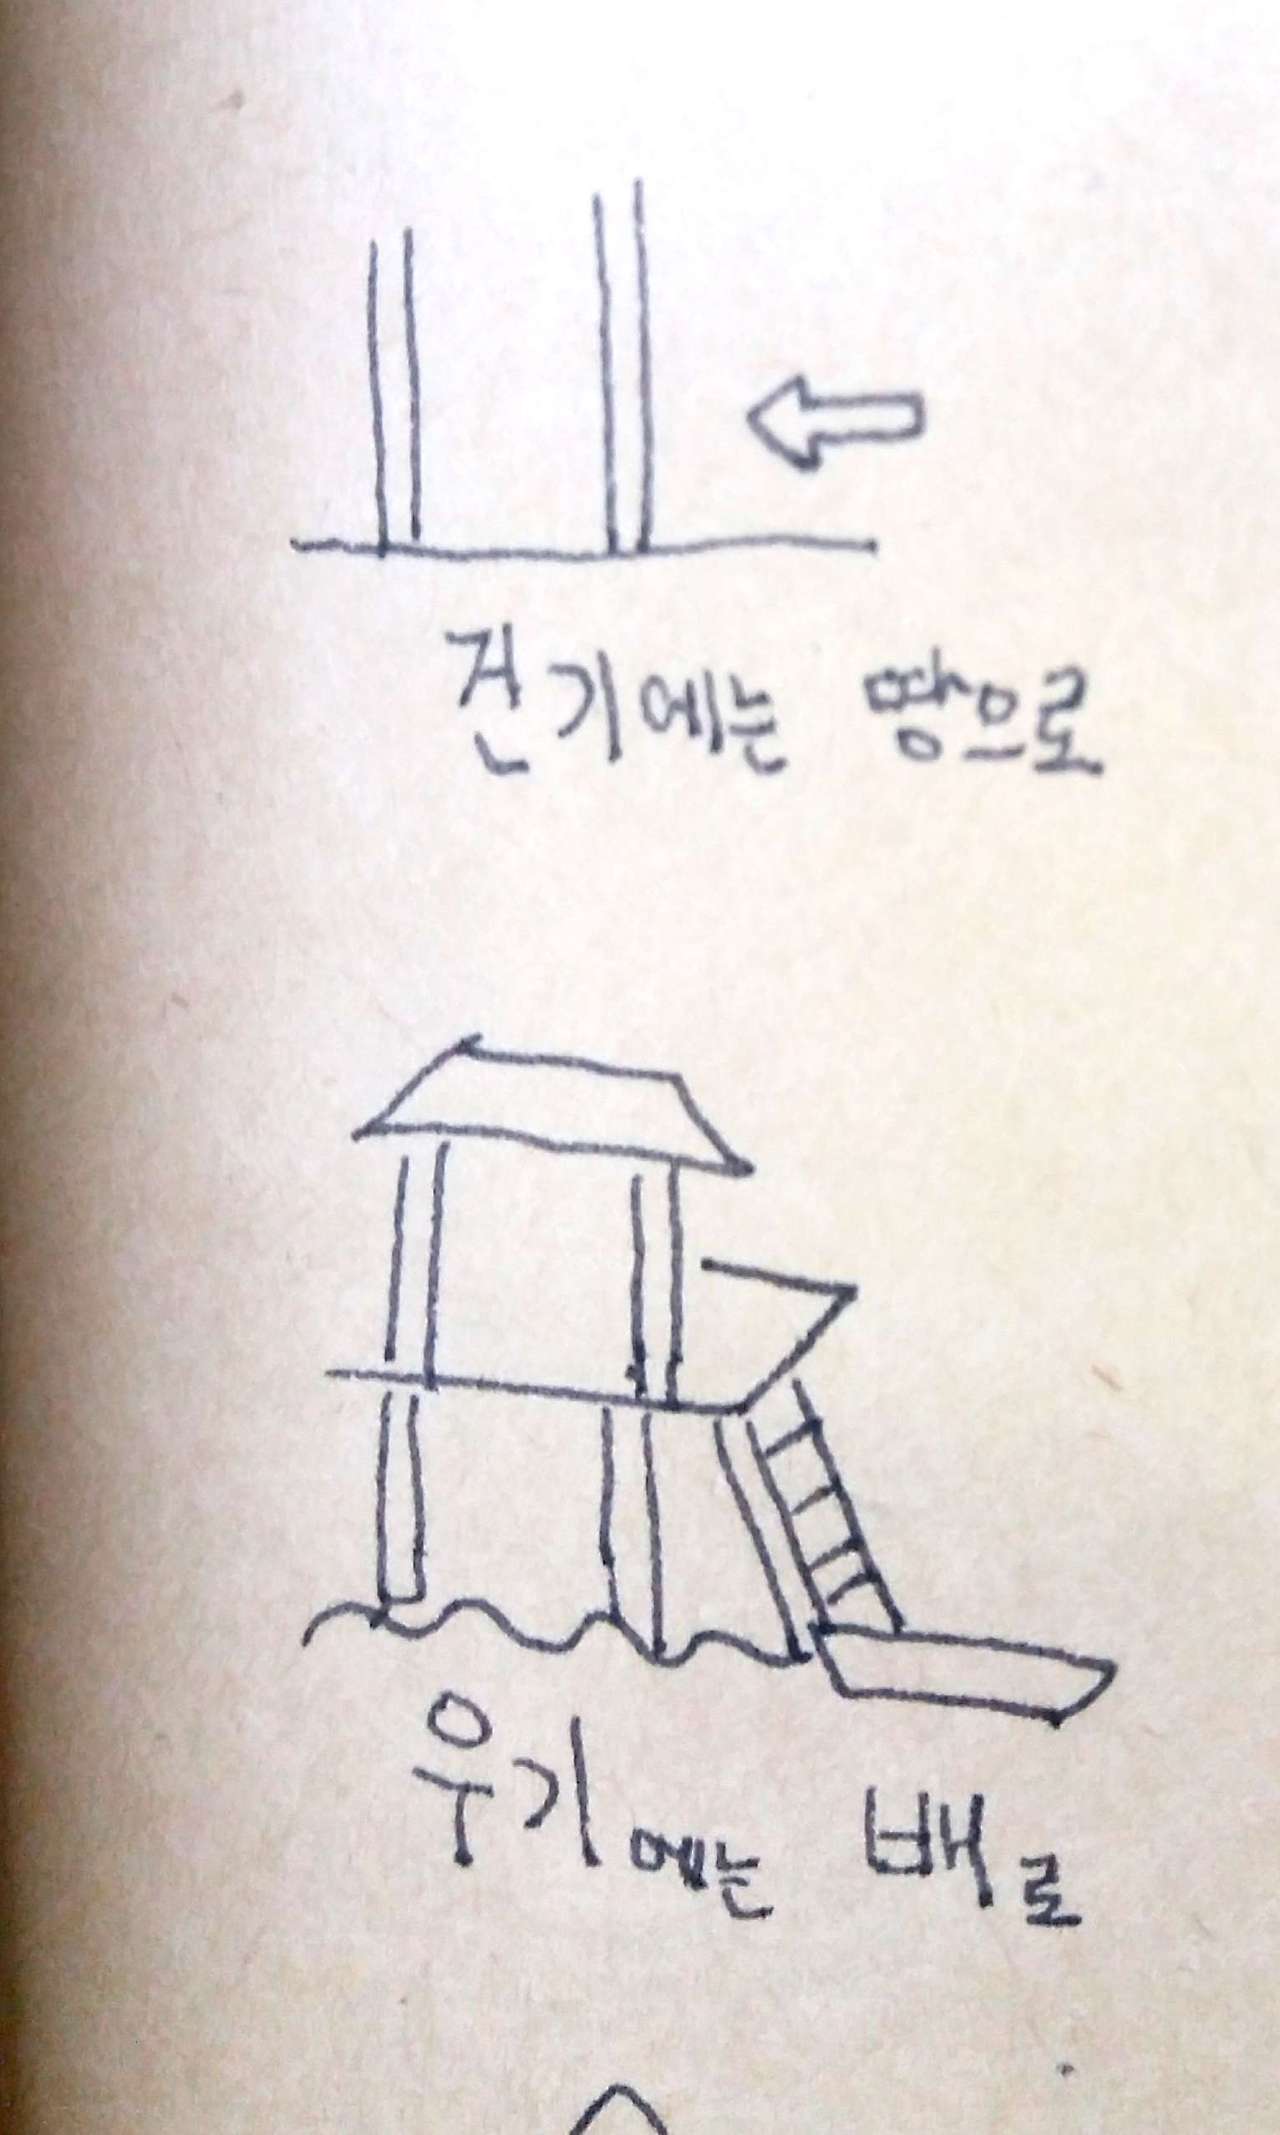 건기에는 땅으로
우기에는 배로